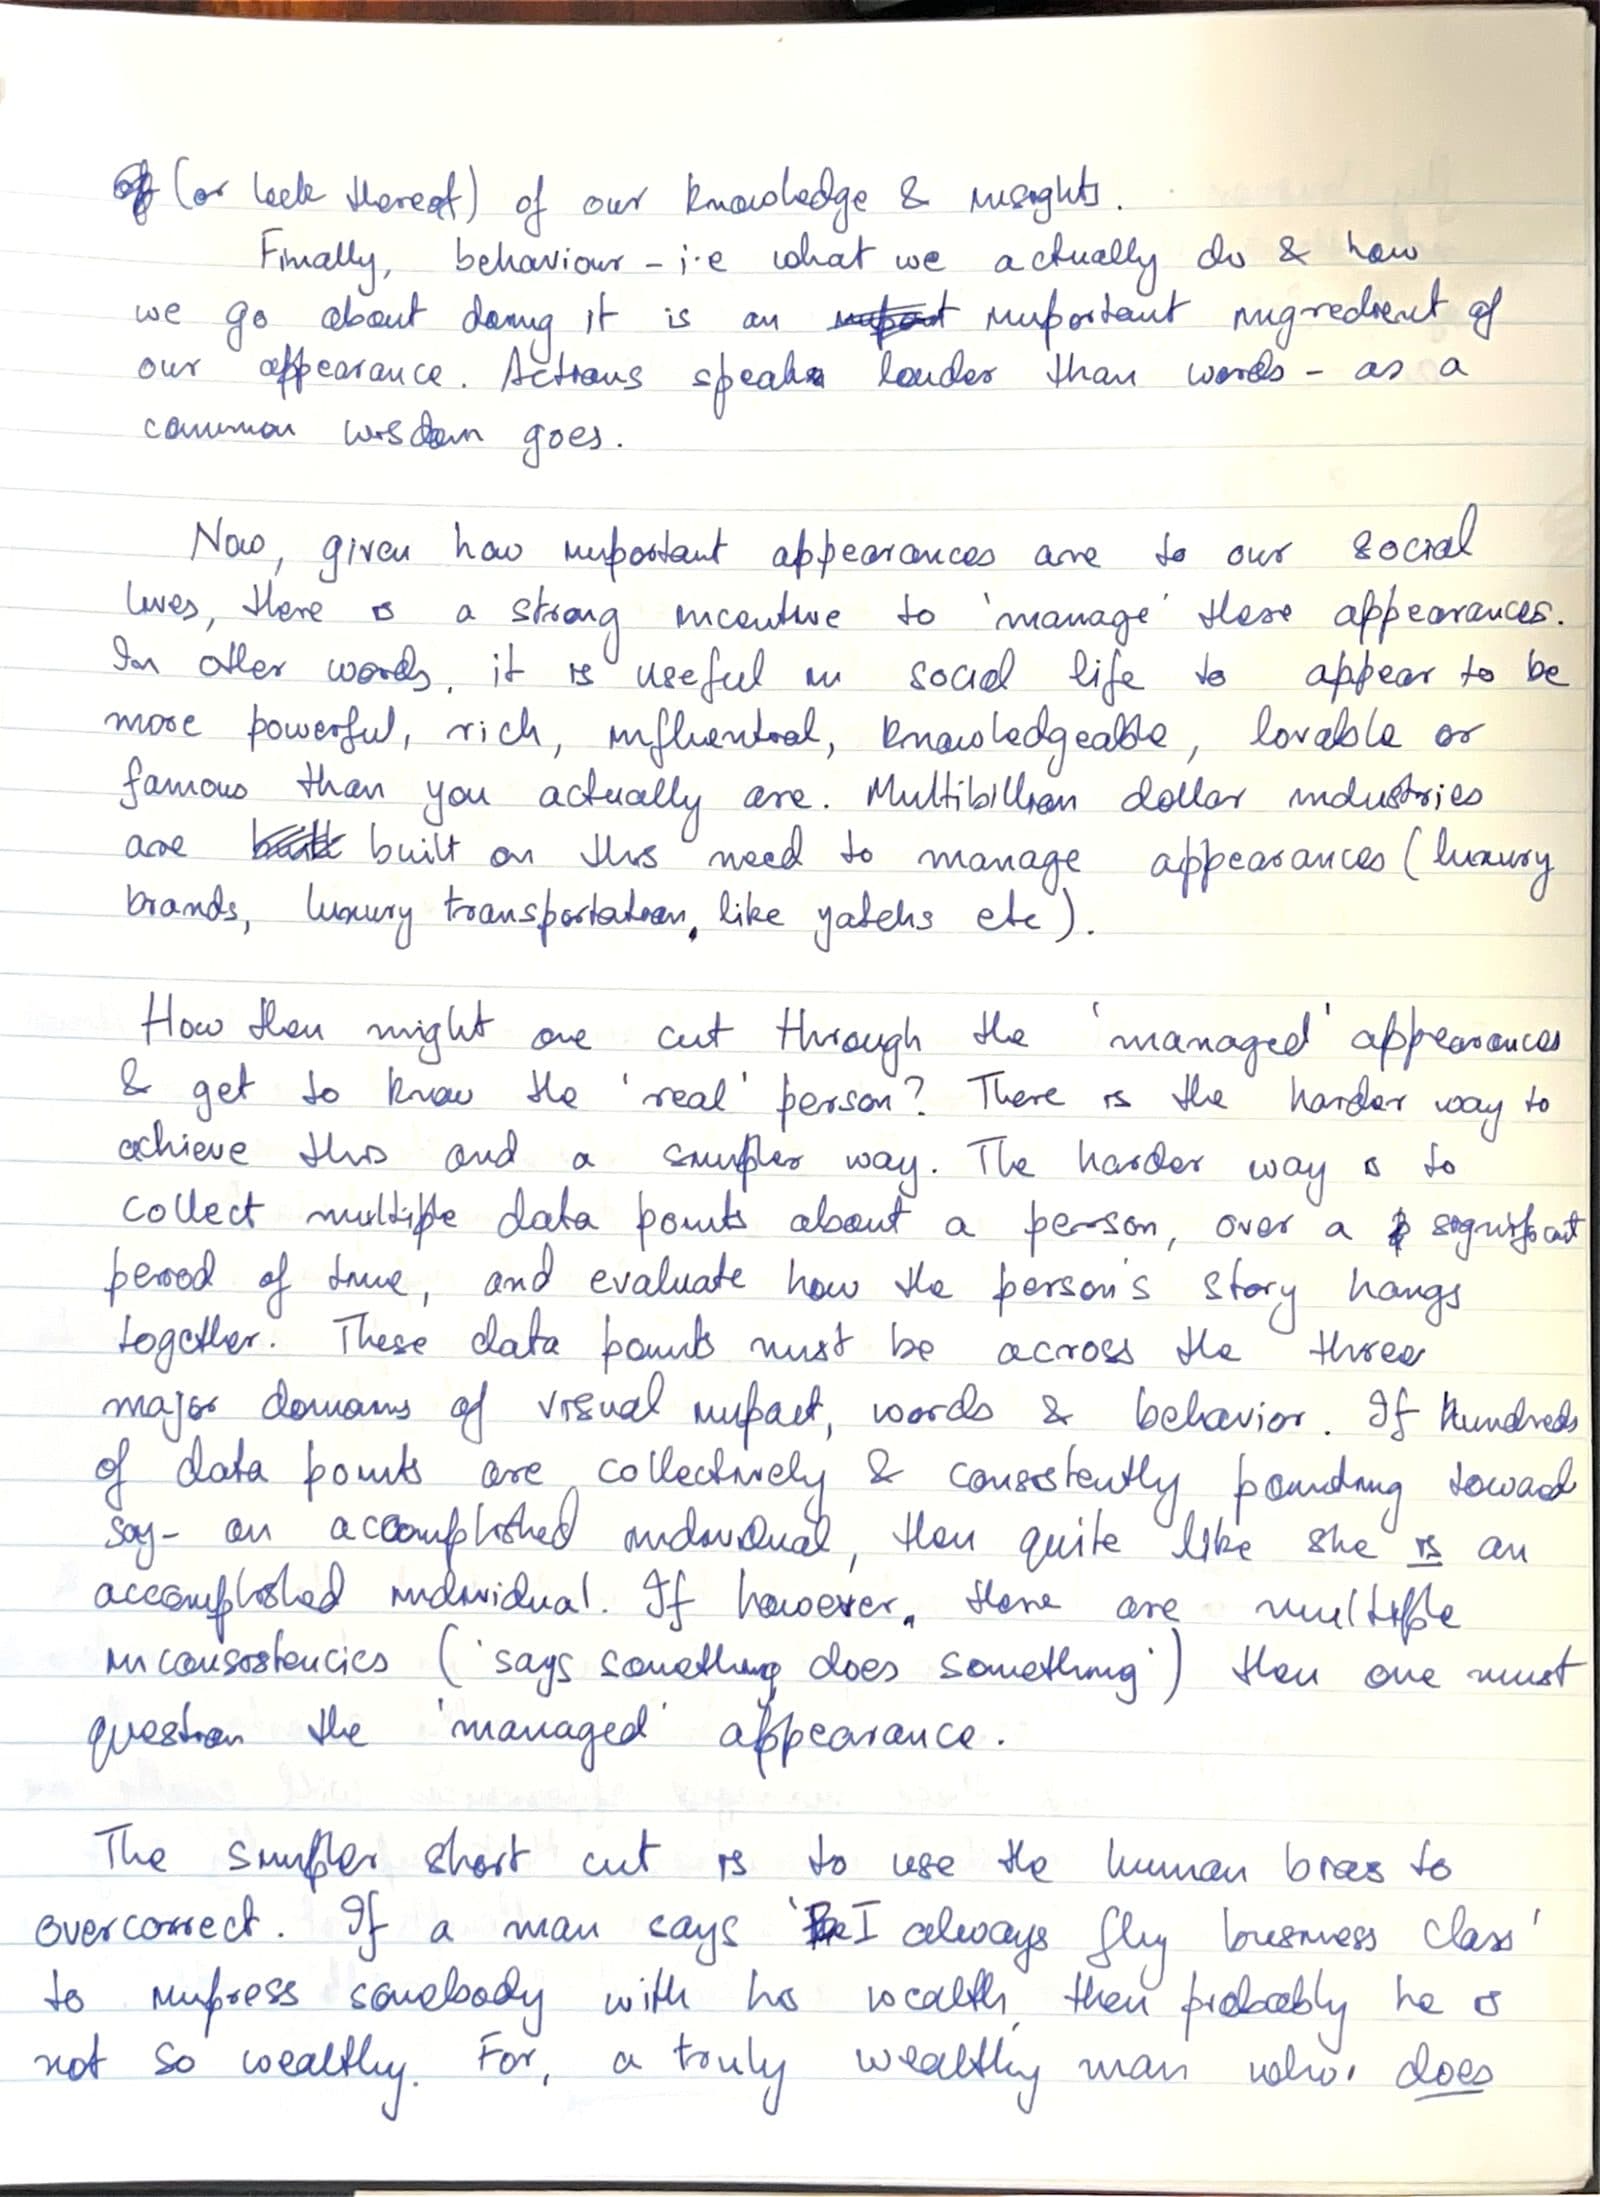 (or lack thereof) of our knowledge & insights.
Finally, behaviour - i.e what we actually do & how
we go about doing it is an important ingredient of
our appearance. Actions speak louder than words - as a
common wisdom goes.
Now, given how important appearances are to our social
lives, there is a strong incentive to 'manage' these appearances.
In other words, it is useful in social life to appear to be
more powerful, rich, influential, knowledgeable, lovable or
famous than you actually are. Multibillion dollar industries
are built on this need to manage appearances (luxury
brands, luxury transportation, like yatchs etc).
How then might one cut through the 'managed' appearances
& get to know the 'real' person? There is the harder way to
achieve this and a simpler way. The harder way is to
collect multiple data points about a person, over a significant
period of time, and evaluate how the person's story hangs
together. These data points must be across the three
major domains of visual impact, words & behavior. If hundreds
of data points are collectively & consistently pointing toward
say - an accomplished individual, then quite like she is an
accomplished individual. If however, there are multiple
inconsistencies ('says something does something') then one must
question the 'managed' appearance.
The simpler short cut is to use the human bias to
overcorrect. If a man says 'I always fly business class'
to impress somebody with his wealth, then probably he is
not so wealthy. For, a truly wealthy man who, does